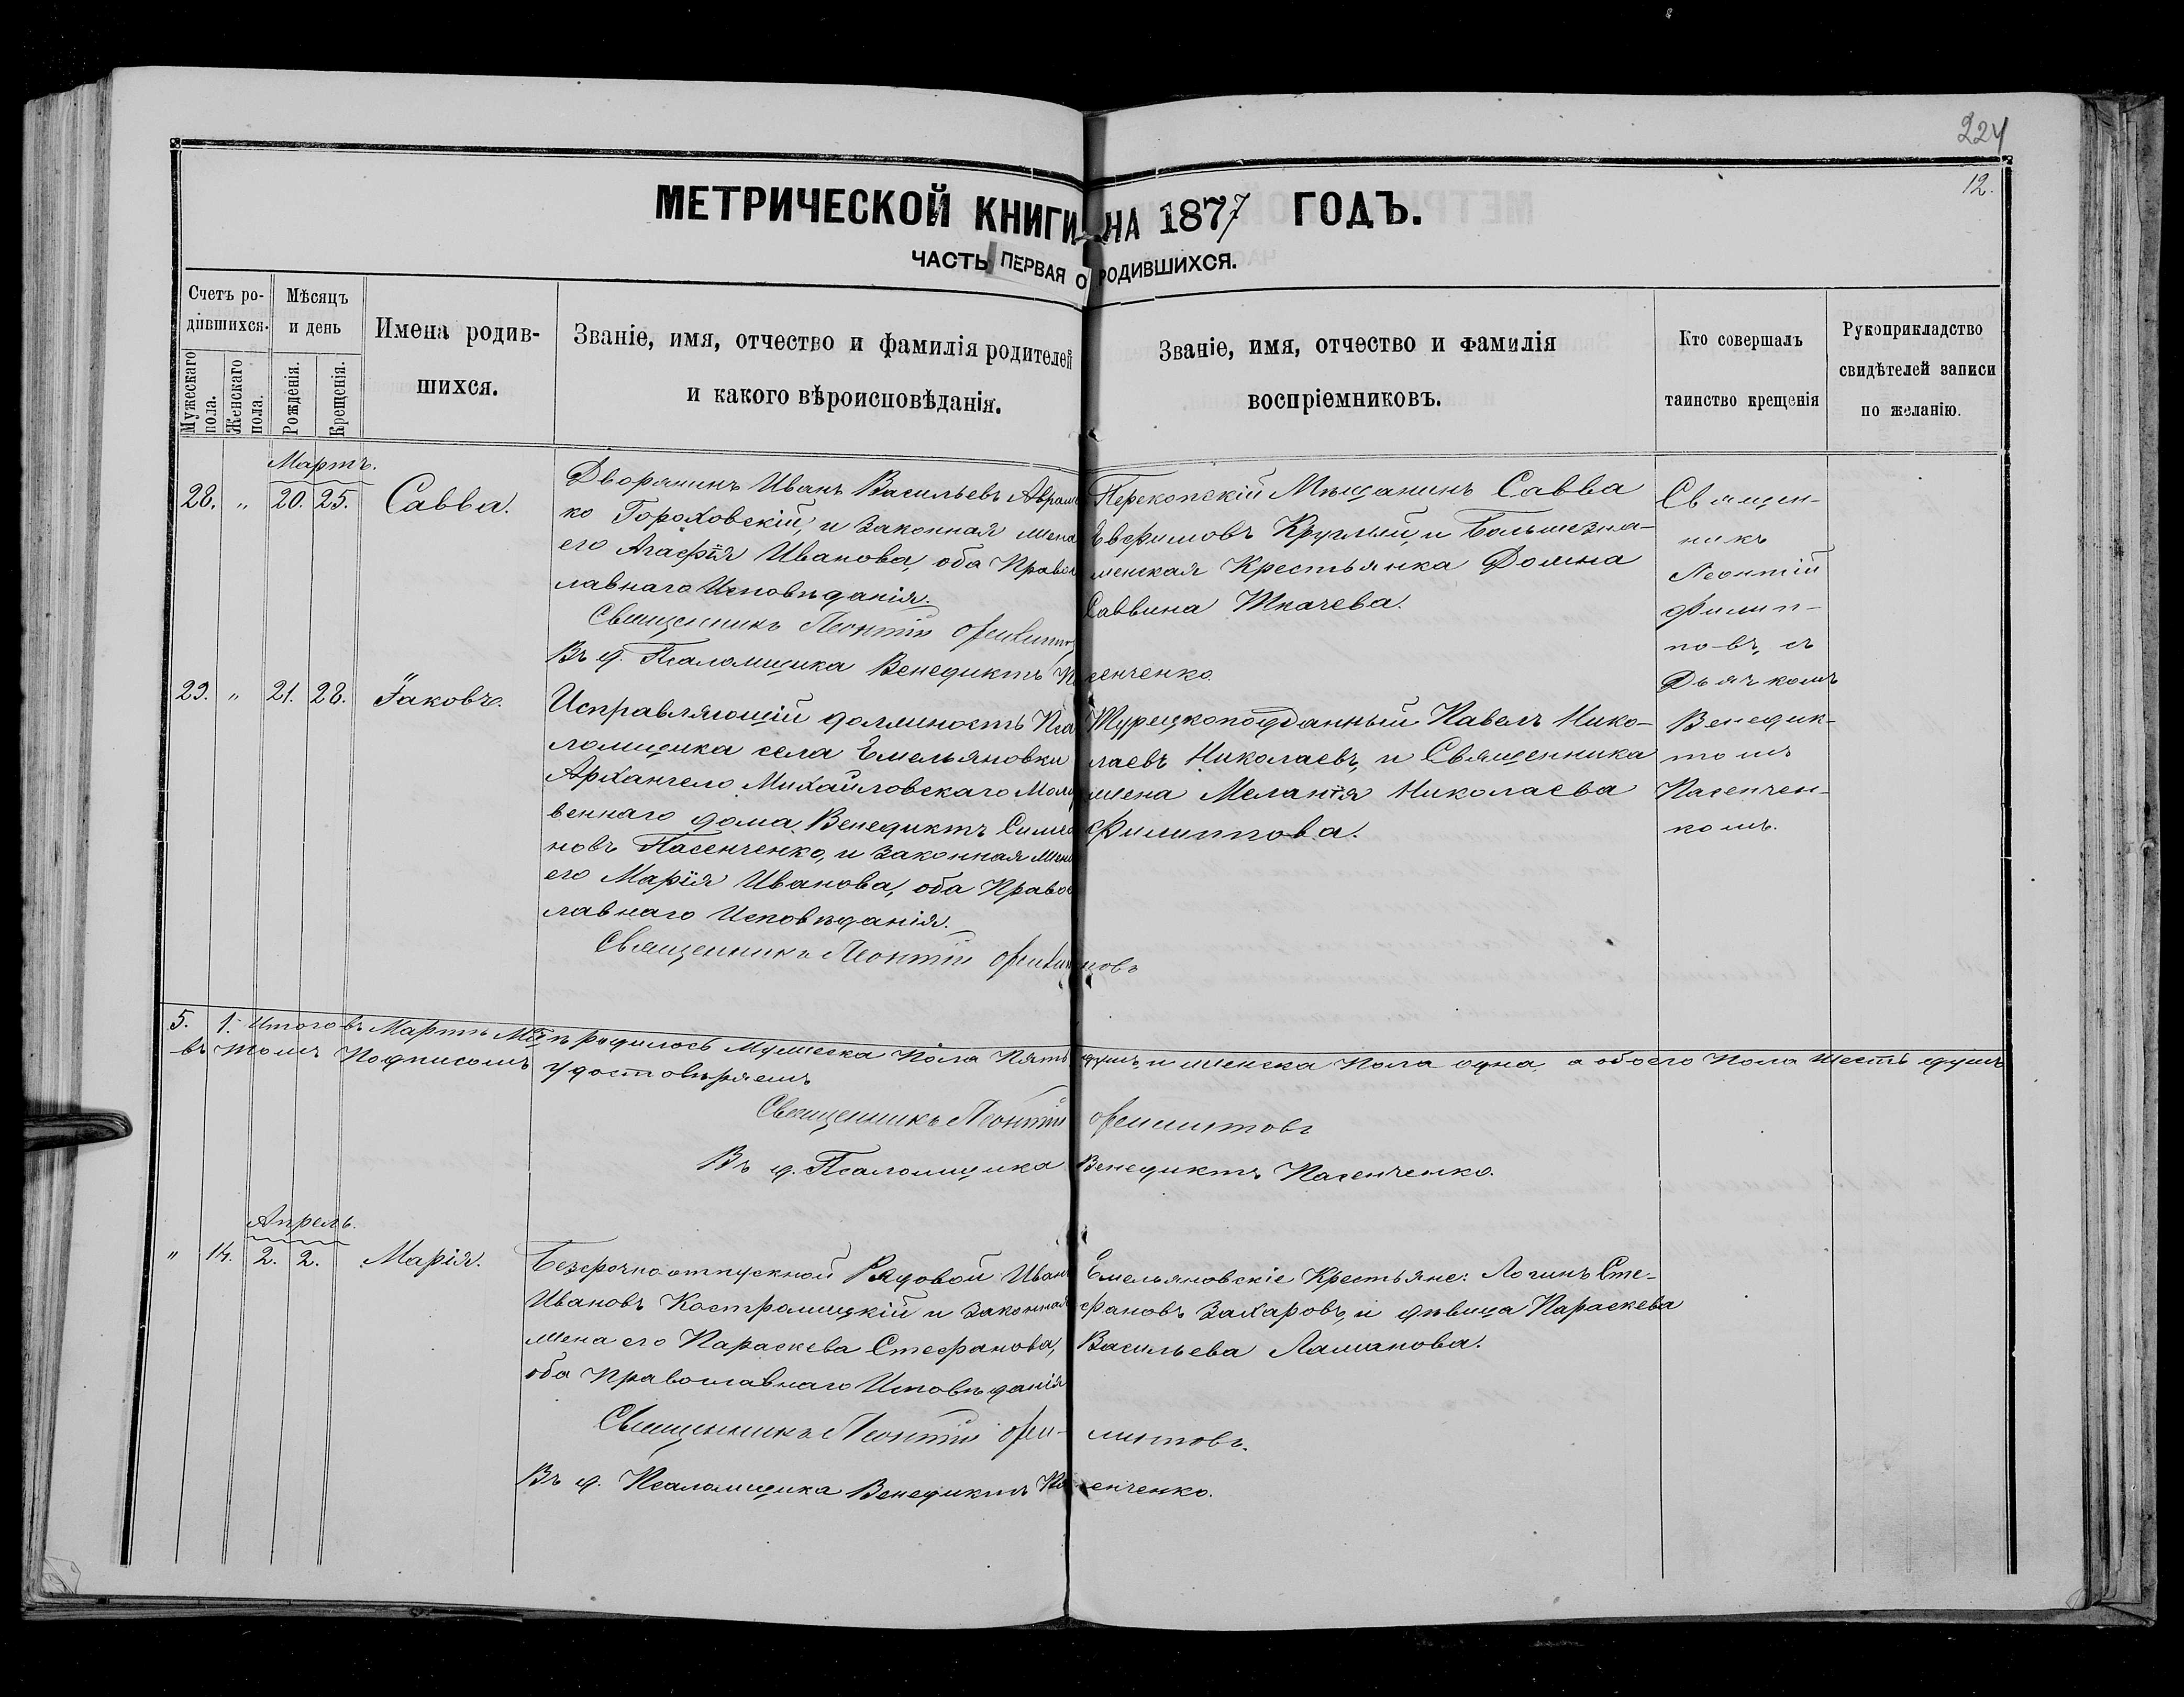 224
12.
МЕТРИЧЕСКОЙ КНИГИ НА 1877 ГОДЪ.
ЧАСТЬ ПЕРВАЯ О РОДИВШИХСЯ.
Счетъ ро-
дившихся.
Мужескаго пола.
Женскаго пола.
Мѣсяцъ
и день
Рожденія.
Крещенія.
Имена родив-
шихся.
Званіе, имя, отчество и фамилія родителей
и какого вѣроисповѣданія.
Званіе, имя, отчество и фамилія
воспріемниковъ.
Кто совершалъ
таинство крещенія
Рукоприкладство
свидѣтелей записи
по желанію.
Мартъ.
28. " 20. 25. Савва.
Дворянинъ Иванъ Васильевъ Аврам
ко Гороховскій, и законная жена
его Агафія Иванова, оба Право
лавнаго Исповѣданія.
Священникъ Леонтій Филиппо
Въ д. Псаломщика Венедиктъ Пасенченко.
Перекопскій Мѣщанинъ Савва
Евфимовъ Круглый, и Большезна-
менская Крестьянка Домна
Саввина Ткачева.
Священ-
никъ
Леонтій
Филип-
повъ, съ
Дьячкомъ
Венедик-
томъ
Пасенчен-
комъ.
29. " 21. 28. Іаковъ.
Исправляющій должность Пса
ломщика села Емельяновки
Архангело Михайловскаго Моли
веннаго дома, Венедиктъ Симео
новъ Пасенченко, и законная жена
его Марія Иванова, оба Право
лавнаго Исповѣданія.
Священникъ Леонтій Филипповъ
Турецкоподданный Павелъ Нико-
лаевъ Николаевъ, и Священника
жена Меланія Николаева
Филиппова.
5. 1. Итого въ Мартѣ Мцѣ родилось Мужеска Пола Пять душъ, и женска Пола одна, а обоего Пола шесть душъ
въ томъ Подписомъ удостовѣряемъ
Священникъ Леонтій Филипповъ
Въ д. Псаломщика Венедиктъ Пасенченко.
Апрель.
" 14. 2. 2. Марія.
Безсрочноотпускной Рядовой Иванъ
Ивановъ Костромицкій и законная
жена его Параскева Стефанова,
оба Православнаго Исповѣданія
Священникъ Леонтій Фи- липповъ.
Въ д. Псаломщика Венедиктъ Пасенченко.
Емельяновскіе Крестьяне: Логинъ Сте-
фановъ Захаровъ, и дѣвица Параскева
Васильева Ламанова.